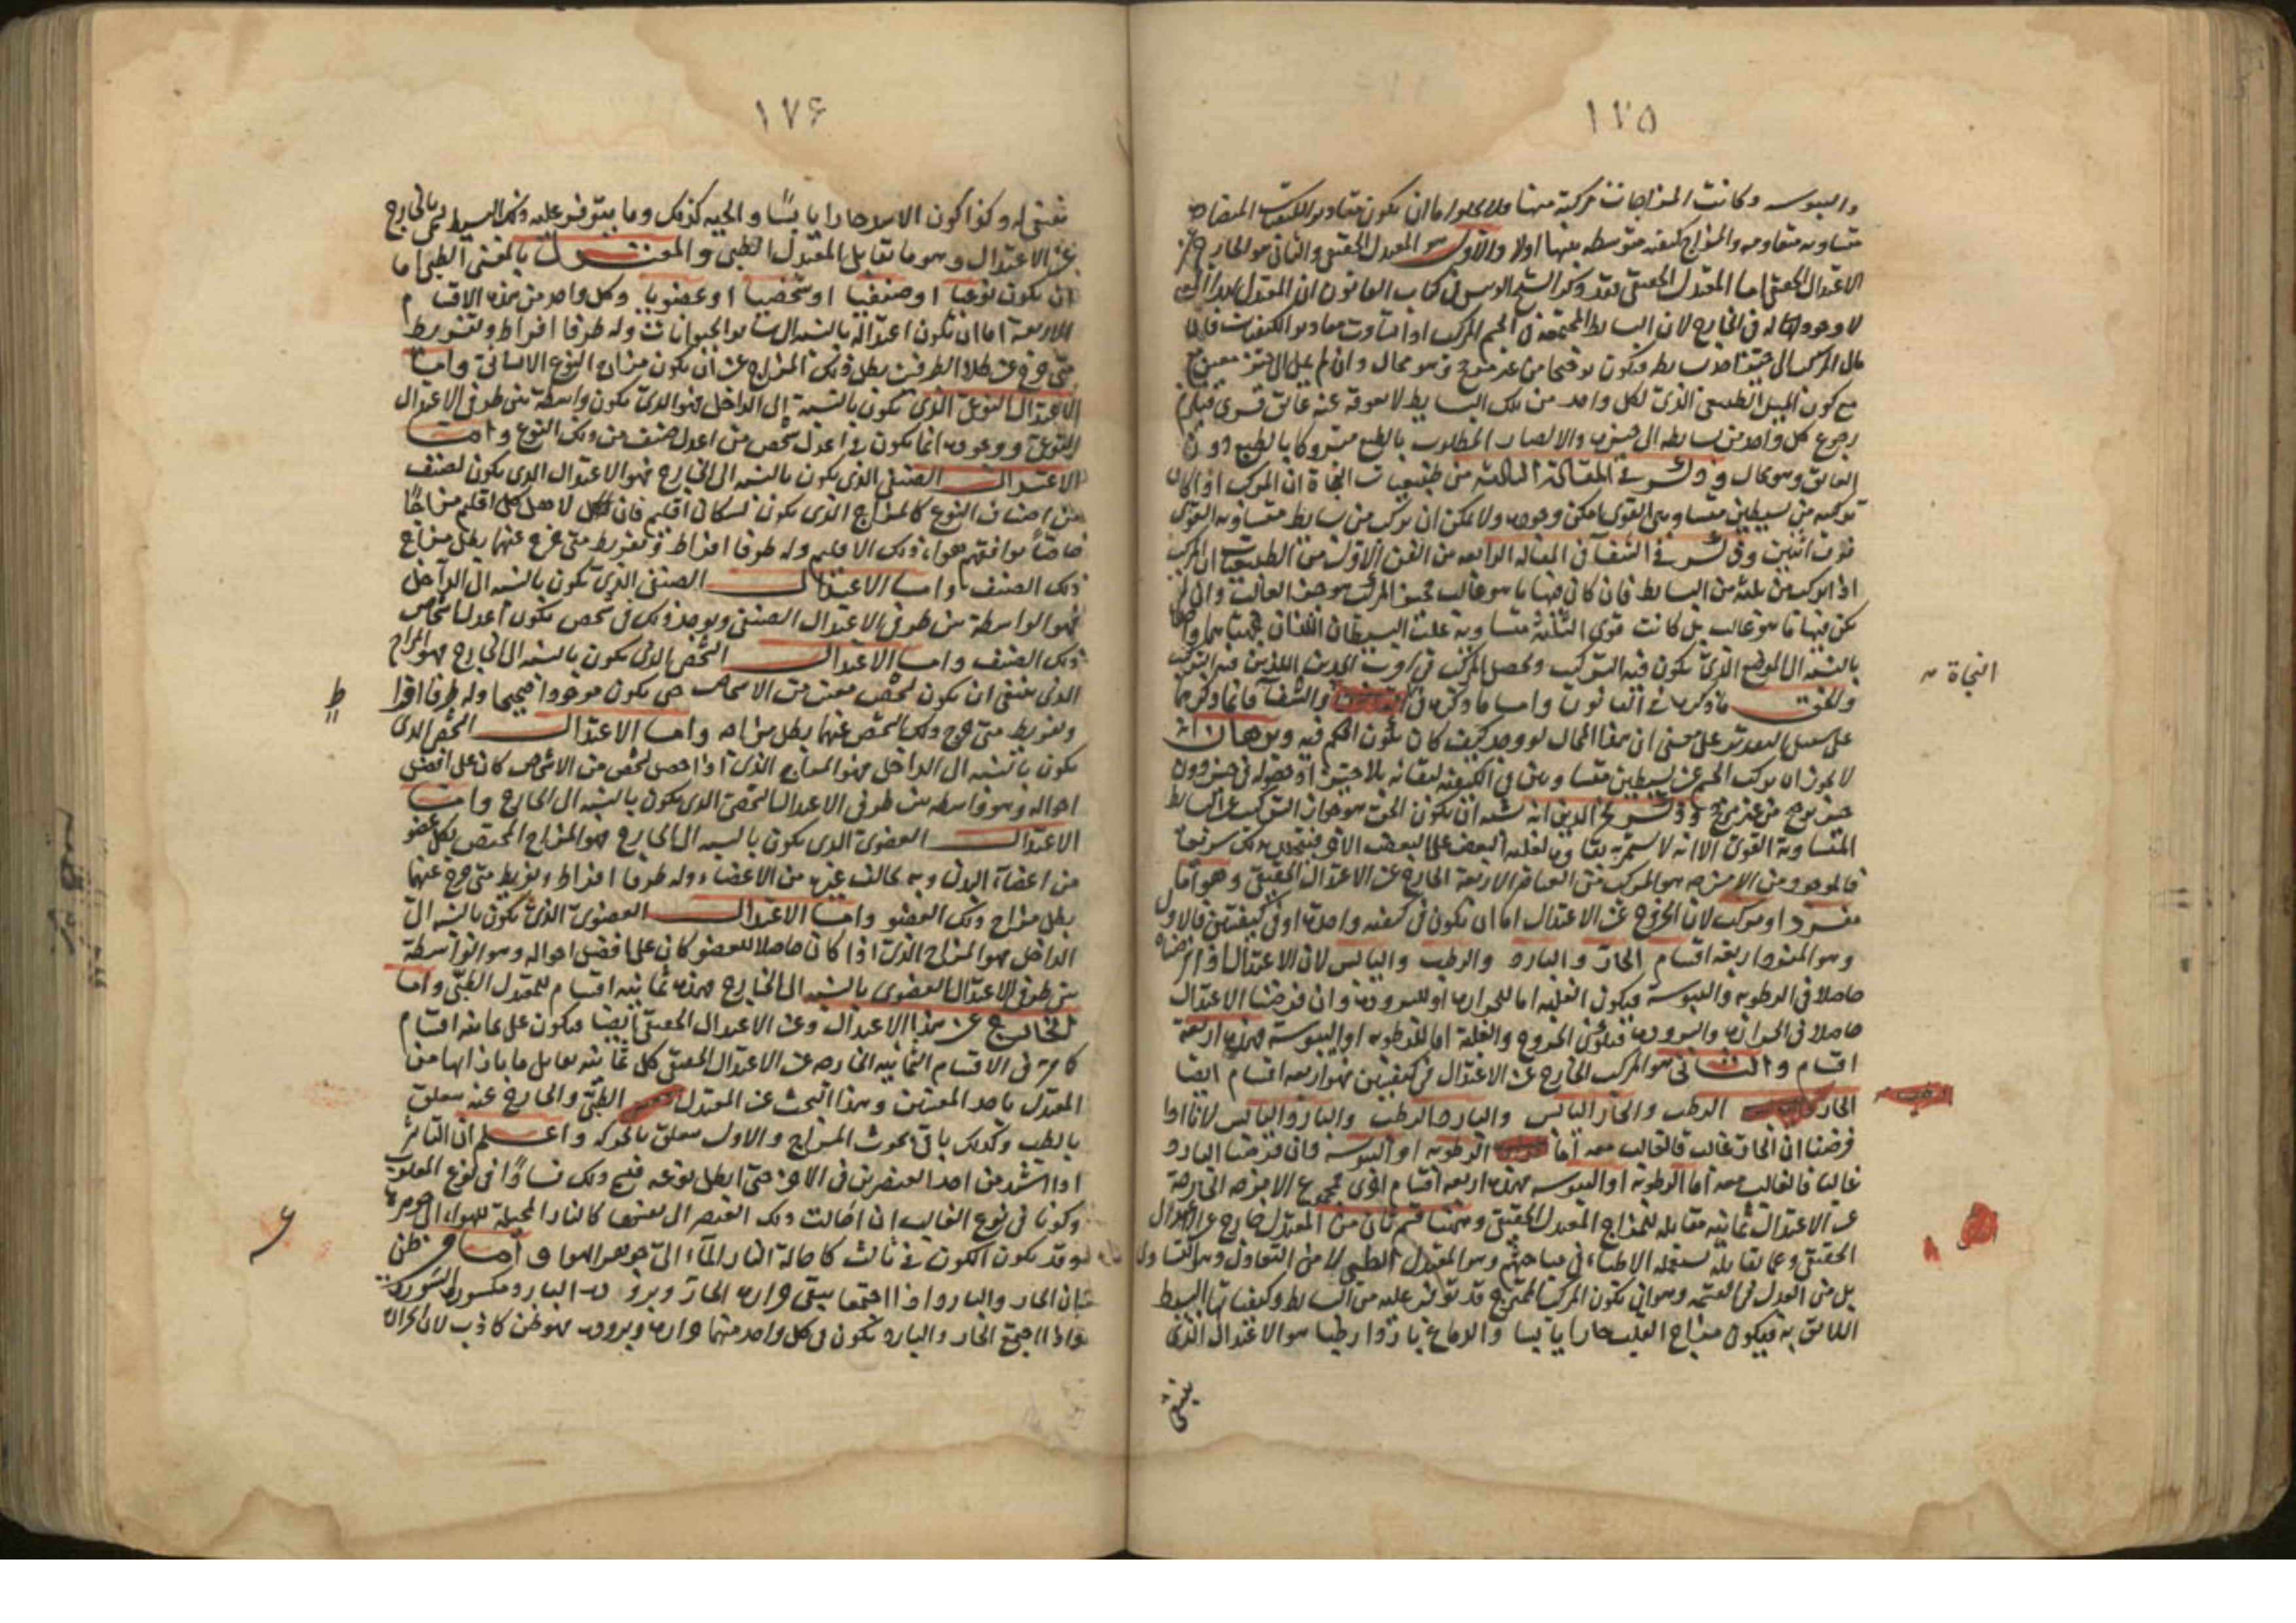 ١٧٥
واليبوسه وكانت المزاجات مركبة منها فلا يخلوا اما ان يكون مقادير الكيفيات المتضاده
متساويه متقاومه والمزاج كيفيه متوسطه بينها اولا والاول هو المعتدل الحقيقى والثانى هو الخارج عن
الاعتدال الحقيقى اما المعتدل الحقيقى فقد ذكر الشيخ الرئيس فى كتاب القانون ان المعتدل بهذا المعنى
لا وجود له فى الخارج لان البسايط المجتمعة فى الجسم المركب اذا تساوت مقادير الكيفيات فان
مال المركب الى حيز احد بسايطه فيكون ترجيحا من غير مرجح وهو محال وان لم يمل الى حيز معين
مع كون الميل الطبيعى الذى لكل واحد من تلك البسايط لا يعوقه عنه عائق قسرى فيلزم
رجوع كل واحد من بسايطه الى حيزه والا لصار المطلوب بالطبع متروكا بالطبع دون
العائق وهو محال وذكر فى المقالة الثالثة من طبيعيات النجاة ان المركب اذا كان
تركيبه من بسيطين متساويى القوى امكن وجوده ولا يمكن ان يركب من بسايط متساويه القوى
فوق اثنين وذكر فى الشفا فى المقاله الرابعه من الفن الاول من الطبيعيات ان المركب
اذا تركب من ثلثه من البسايط فان كان فيها ما هو غالب فحيز المركب هو حيز الغالب وان لم
يكن فيها ما هو غالب بل كانت قوى الثلثة متساوية غلب البسيطان اللذان جهتاهما واحدة
بالنسبه الى الموضع الذى يكون فيه التركيب ويحصل المركب فى اقرب الحيزين اللذين فيه التركيب
والحق ما ذكره فى القانون واما ما ذكره فى والشفا فانما ذكرهما
على سبيل التقدير على معنى ان هذا المحال لو وجد كيف كان يكون الحكم فيه وبرهان انه
لا يجوز ان يركب الجسم عن بسيطين متساويين فى الكيفيه لبقائه بلا حيز او حصوله فى حيز دون
حيز ترجح من غير مرجح وذكر فخر الدين انه يشبه ان يكون الحق هو جواز التركيب عن البسايط
المتساوية القوى الا انه لا يستمر به بقاوها لغلبة البعض على البعض الاخر فيتحلل ذلك سريعا
فالموجود من الامزجه هو المركب من العناصر الاربعة الخارج عن الاعتدال الحقيقى وهو اما
مفرد او مركب لان الخروج عن الاعتدال اما ان يكون فى كيفيه واحدة او فى كيفيتين فالاول
وهو المفرد اربعه اقسام الحار والبارد والرطب واليابس لان الاعتدال اذا فرضناه
حاصلا فى الرطوبه واليبوسة فيكون الغلبه اما للحرارة او للبرودة وان فرضنا الاعتدال
حاصلا فى الحرارة والبرودة فيكون الخروج والغلبة اما للرطوبه او اليبوسة فهذه اربعة
اقسام والثانى هو المركب الخارج عن الاعتدال فى كيفيتين فهو اربعه اقسام ايضا
الحار الرطب والحار اليابس والبارد الرطب والبارد اليابس لانا اذا
فرضنا ان الحار غالب فالغالب معه اما الرطوبه او اليبوسة وان فرضنا البارد
غالبا فالغالب معه اما الرطوبه او اليبوسه فهذه اربعه اقسام اخرى فمجموع الامزجه الخارجة
عن الاعتدال ثمانيه مقابله للمزاج المعتدل الحقيقى وههنا قسم ثان من المعتدل خارج عن الاعتدال
الحقيقى وعما يقابله يستعمله الاطباء فى مباحثهم وهو المعتدل الطبى لا من التعادل وهو التساوى
بل من العدل فى القسمه وهو ان يكون المركب الممتزج قد توفر عليه من البسايط وكيفياتها القسط
اللائق به فيكون مزاج القلب حارا يابسا والدماغ باردا رطبا هو الاعتدال الذى
ينبغى
النجاة
الرطب
١٧۶
ينبغى له وكذا كون الاسد حارا يابسا والجبه كذلك وما يتوفر عليه ذلك القسط يسمى بالخارج
عن الاعتدال وهو ما يقابل المعتدل الطبى والمعتدل بالمعنى الطبى اما
ان يكون نوعيا او صنفيا او شخصيا او عضويا وكل واحد من هذه الاقسام
الاربعة اما ان يكون اعتداله بالنسبه الى ساير الحيوانات وله طرفا افراط وتفريط
متى خرج عن كلا الطرفين بطل ذلك المزاج عن ان يكون مزاج النوع الانسانى واما
الاعتدال النوعى الذى يكون بالنسبة الى الداخل فهو الذى يكون واسطة بين طرفى الاعتدال
النوعى ووجوده انما يكون فى اعدل شخص من اعدل صنف من ذلك النوع واما
الاعتدال الصنفى الذى يكون بالنسبه الى الخارج فهو الاعتدال الذى يكون لصنف
من اصناف النوع كالمزاج الذى يكون لسكان اقليم فان لاهل كل اقليم مزاجا
خاصا يوافقهم هواء ذلك الاقليم وله طرفا افراط وتفريط متى خرج عنهما بطل مزاج
ذلك الصنف واما الاعتدال الصنفى الذى يكون بالنسبه الى الداخل
فهو الواسطة بين طرفى الاعتدال الصنفى ويوجد ذلك فى شخص يكون اعدل اشخاص
ذلك الصنف واما الاعتدال الشخصى الذى يكون بالنسبه الى الخارج فهو المزاج
الذى ينبغى ان يكون لشخص معين من الاشخاص حتى يكون موجودا صحيحا وله طرفا افراط
وتفريط متى خرج ذلك الشخص عنهما بطل مزاجه واما الاعتدال الشخصى الذى
يكون بالنسبه الى الداخل فهو المزاج الذى اذا حصل لشخص من الاشخاص كان على افضل
احواله وهو واسطه بين طرفى الاعتدال الشخصى الذى يكون بالنسبه الى الخارج واما
الاعتدال العضوى الذى يكون بالنسبه الى الخارج فهو المزاج المختص بكل عضو
من اعضاء البدن وبه يخالف غيره من الاعضاء وله طرفا افراط وتفريط متى خرج عنهما
بطل مزاج ذلك العضو واما الاعتدال العضوى الذى يكون بالنسبه الى
الداخل فهو المزاج الذى اذا كان حاصلا للعضو كان على افضل احواله وهو الواسطة
بين طرفى الاعتدال العضوى بالنسبه الى الخارج فهذه ثمانيه اقسام للمعتدل الطبى واما
الخارج عن هذا الاعتدال وعن الاعتدال الحقيقى ايضا فيكون على ثمانيه اقسام
كما مر فى الاقسام الثمانيه الخارجه عن الاعتدال الحقيقى كل ثمانيه يقابل ما بازائها من
المعتدل باحد المعنيين وهذا البحث عن المعتدل الطبى والخارج عنه متعلق
بالطب وكذلك باقى بحوث المزاج والاول متعلق بالحركه واعلم ان التاثير
اذا اشتد من احد العنصرين فى الاخر حتى ابطل نوعه فيسمى ذلك فسادا فى نوع المغلوب
وكونا فى نوع الغالب ان احالت ذلك العنصر الى نفسها كالنار المحيلة للهواء الى جوهرها
وقد يكون الكون فى ثالث كاحالة النار الماء الى جوهر الهوا واما من ظن
بان الحار والبارد اذا اجتمعا يبقى حرارة الحار وبرودة البارد مكسورة السورة
واذا اجتمع الحار والبارد يكون فى كل واحد منهما حرارة وبرودة فهو ظن كاذب لان الحرارة
ط